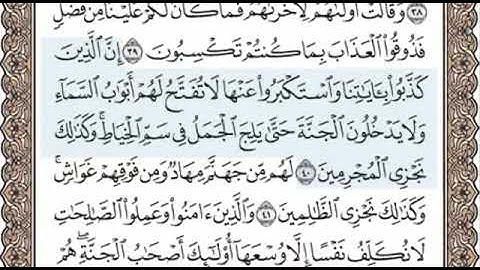 ٣٨ وَقَالَتْ أُولَىٰهُمْ لِأُخْرَىٰهُمْ فَمَا كَانَ لَكُمْ عَلَيْنَا مِن فَضْلٍ
فَذُوقُوا۟ ٱلْعَذَابَ بِمَا كُنتُمْ تَكْسِبُونَ ٣٩ إِنَّ ٱلَّذِينَ
كَذَّبُوا۟ بِـَٔايَـٰتِنَا وَٱسْتَكْبَرُوا۟ عَنْهَا لَا تُفَتَّحُ لَهُمْ أَبْوَٰبُ ٱلسَّمَآءِ
وَلَا يَدْخُلُونَ ٱلْجَنَّةَ حَتَّىٰ يَلِجَ ٱلْجَمَلُ فِى سَمِّ ٱلْخِيَاطِ ۚ وَكَذَٰلِكَ
نَجْزِى ٱلْمُجْرِمِينَ ٤٠ لَهُم مِّن جَهَنَّمَ مِهَادٌ وَمِن فَوْقِهِمْ غَوَاشٍ ۚ
وَكَذَٰلِكَ نَجْزِى ٱلظَّـٰلِمِينَ ٤١ وَٱلَّذِينَ ءَامَنُوا۟ وَعَمِلُوا۟ ٱلصَّـٰلِحَـٰتِ
لَا نُكَلِّفُ نَفْسًا إِلَّا وُسْعَهَآ أُو۟لَـٰٓئِكَ أَصْحَـٰبُ ٱلْجَنَّةِ ۖ هُمْ